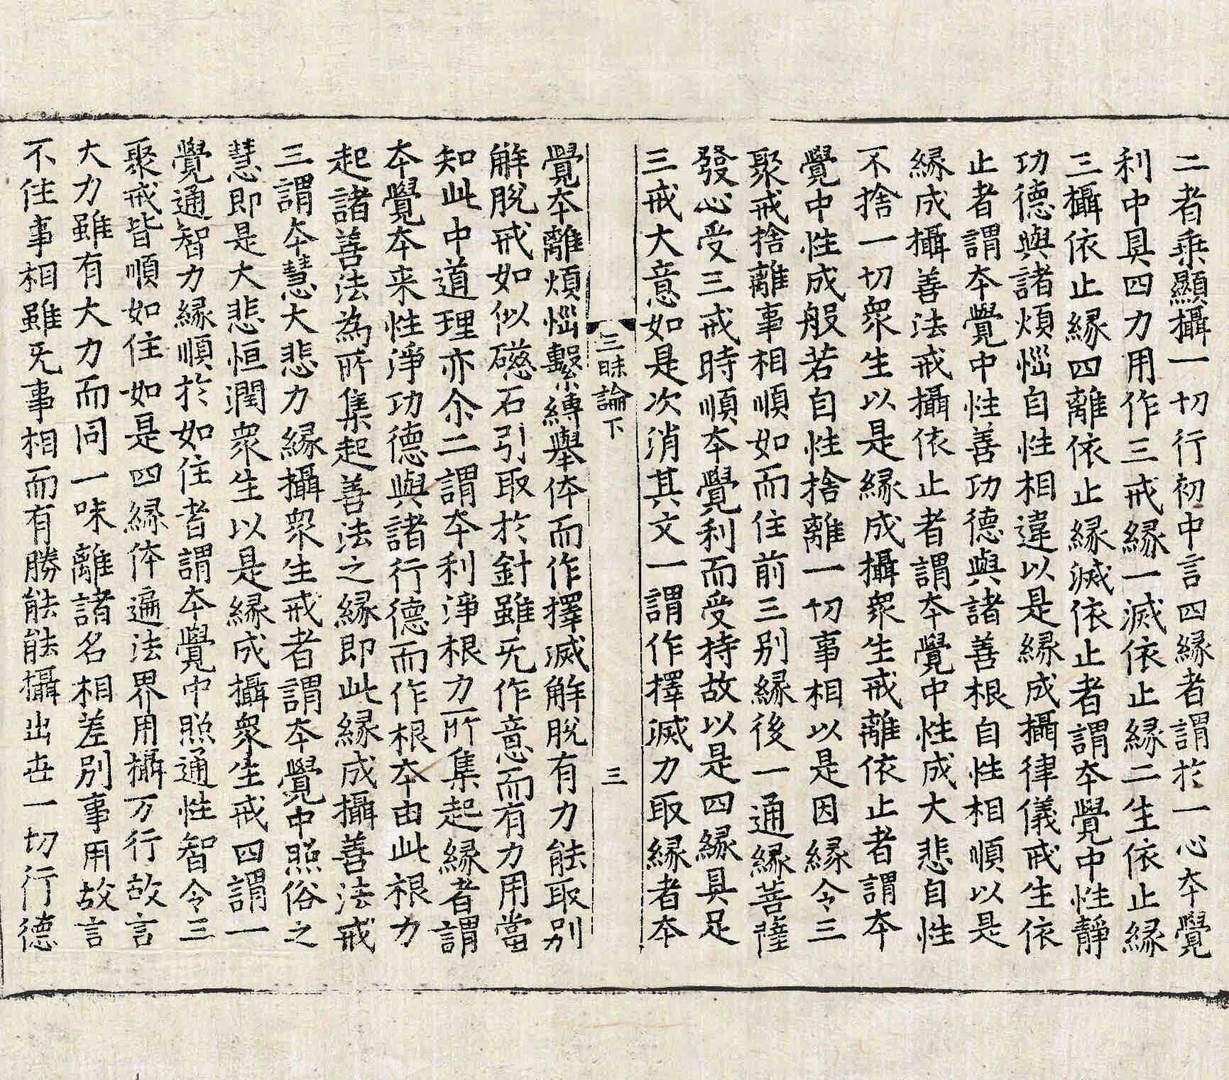 二者乗顯攝一切行初中言四縁者謂於一心夲覺
利中具四力用作三戒縁一滅依止縁二生依止縁
三攝依止縁四離依止縁滅依止者謂夲覺中性靜
功德與諸煩惱自性相違以是縁成攝律儀戒生依
止者謂夲覺中性善功德與諸善根自性相順以是
縁成攝善法戒攝依止者謂夲覺中性成大悲自性
不捨一切衆生以是縁成攝衆生戒離依止者謂夲
覺中性成般若自性捨離一切事相以是因縁令三
聚戒捨離事相順如而住前三别縁後一通縁菩薩
發心受三戒時順夲覺利而受持故以是四縁具足
三戒大意如是次消其文一謂作擇滅力取縁者夲
三昧論下　三
覺夲離煩惱繫縛舉体而作擇滅解脫有力能取别
解脫戒如似磁石引取於針雖旡作意而有力用當
知此中道理亦尒二謂夲利淨根力所集起縁者謂
夲覺夲来性淨功德與諸行德而作根夲由此根力
起諸善法為所集起善法之縁即此縁成攝善法戒
三謂夲慧大悲力縁攝衆生戒者謂夲覺中照俗之
慧即是大悲恒潤衆生以是縁成攝衆生戒四謂一
覺通智力縁順於如住者謂夲覺中照通性智令三
聚戒皆順如住如是四縁体遍法界用攝万行故言
大力雖有大力而同一味離諸名相差别事用故言
不住事相雖旡事相而有勝能能攝出世一切行德